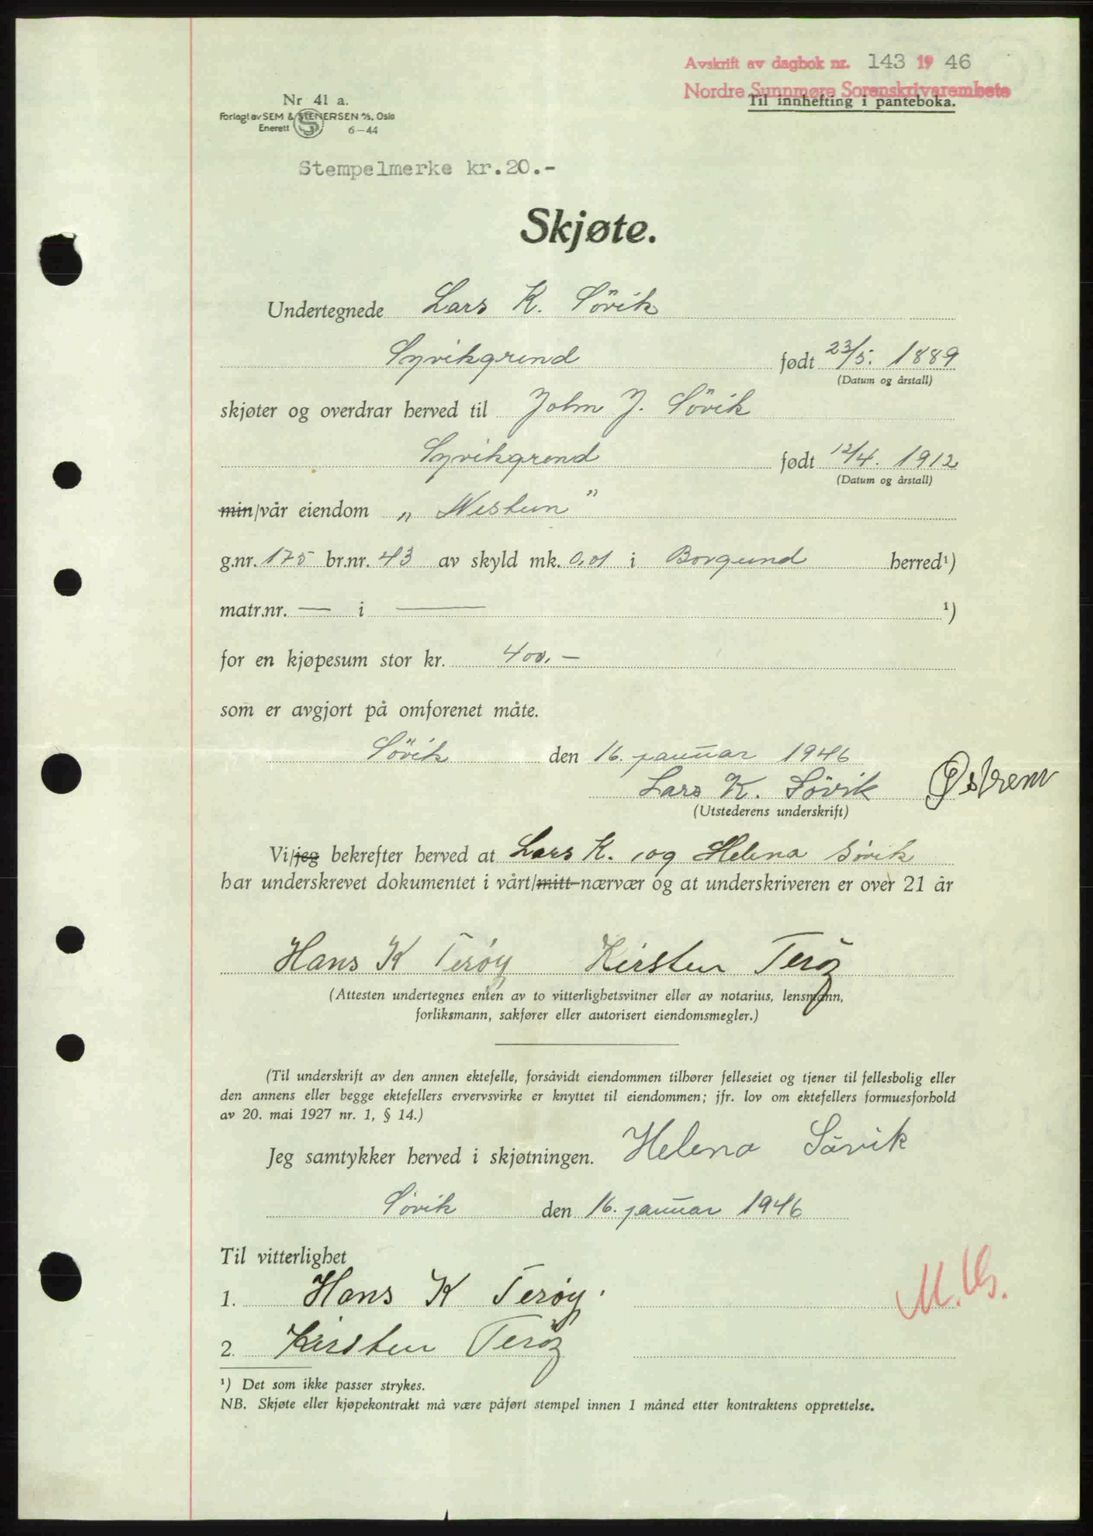 Avskrift av dagbok nr. 143 19 46
Nordre Sunnmøre Sorenskriverembete
Til innhefting i panteboka.
Nr 41 a.
Forlagt av SEM & STENERSEN A/S, Oslo
Enerett S 6-44
Stempelmerke kr.20.-
Skjøte.
Undertegnede Lars K. Sövik
Syvikgrend født 23/5. 1889
(Datum og årstall)
skjøter og overdrar herved til John J. Sövik
Syvikgrend født 12/4. 1912
(Datum og årstall)
min/vår eiendom „ Nistun "
g.nr. 175 br.nr. 43 av skyld mk. 0,01 i Borgund herred¹)
matr.nr. — i — ¹)
for en kjøpesum stor kr. 400,—
som er avgjort på omforenet måte.
Sövik den 16. januar 1946
Lars K. Sövik Østrem
(Utstederens underskrift)
Vi/jeg bekrefter herved at Lars K. og Helena Sövik
har underskrevet dokumentet i vårt/mitt nærvær og at underskriveren er over 21 år
Hans K Terøy Kirsten Terøy
(Attesten undertegnes enten av to vitterlighetsvitner eller av notarius, lensmann,
forliksmann, sakfører eller autorisert eiendomsmegler.)
(Til underskrift av den annen ektefelle, forsåvidt eiendommen tilhører felleseiet og tjener til fellesbolig eller
den annens eller begge ektefellers ervervsvirke er knyttet til eiendommen; jfr. lov om ektefellers formuesforhold
av 20. mai 1927 nr. 1, § 14.)
Jeg samtykker herved i skjøtningen. Helena Sövik
Sövik den 16. januar 1946
Til vitterlighet
1. Hans K Terøy.
M.G.
2. Kirsten Terøy
¹) Det som ikke passer strykes.
NB. Skjøte eller kjøpekontrakt må være påført stempel innen 1 måned etter kontraktens opprettelse.